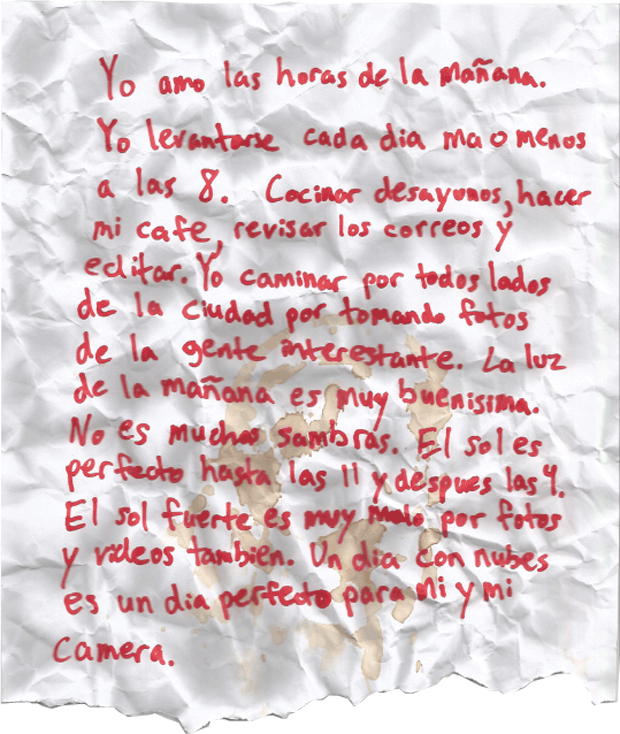 Yo amo las horas de la mañana.
Yo levantarse cada dia ma o menos
a las 8. Cocinar desayunos, hacer
mi cafe, revisar los correos y
editar. Yo caminar por todos lados
de la ciudad por tomando fotos
de la gente interestante. La luz
de la mañana es muy buenisima.
No es muchas sambras. El sol es
perfecto hasta las 11 y despues las 4.
El sol fuerte es muy malo por fotos
y videos tambien. Un dia con nubes
es un dia perfecto para mi y mi
camera.